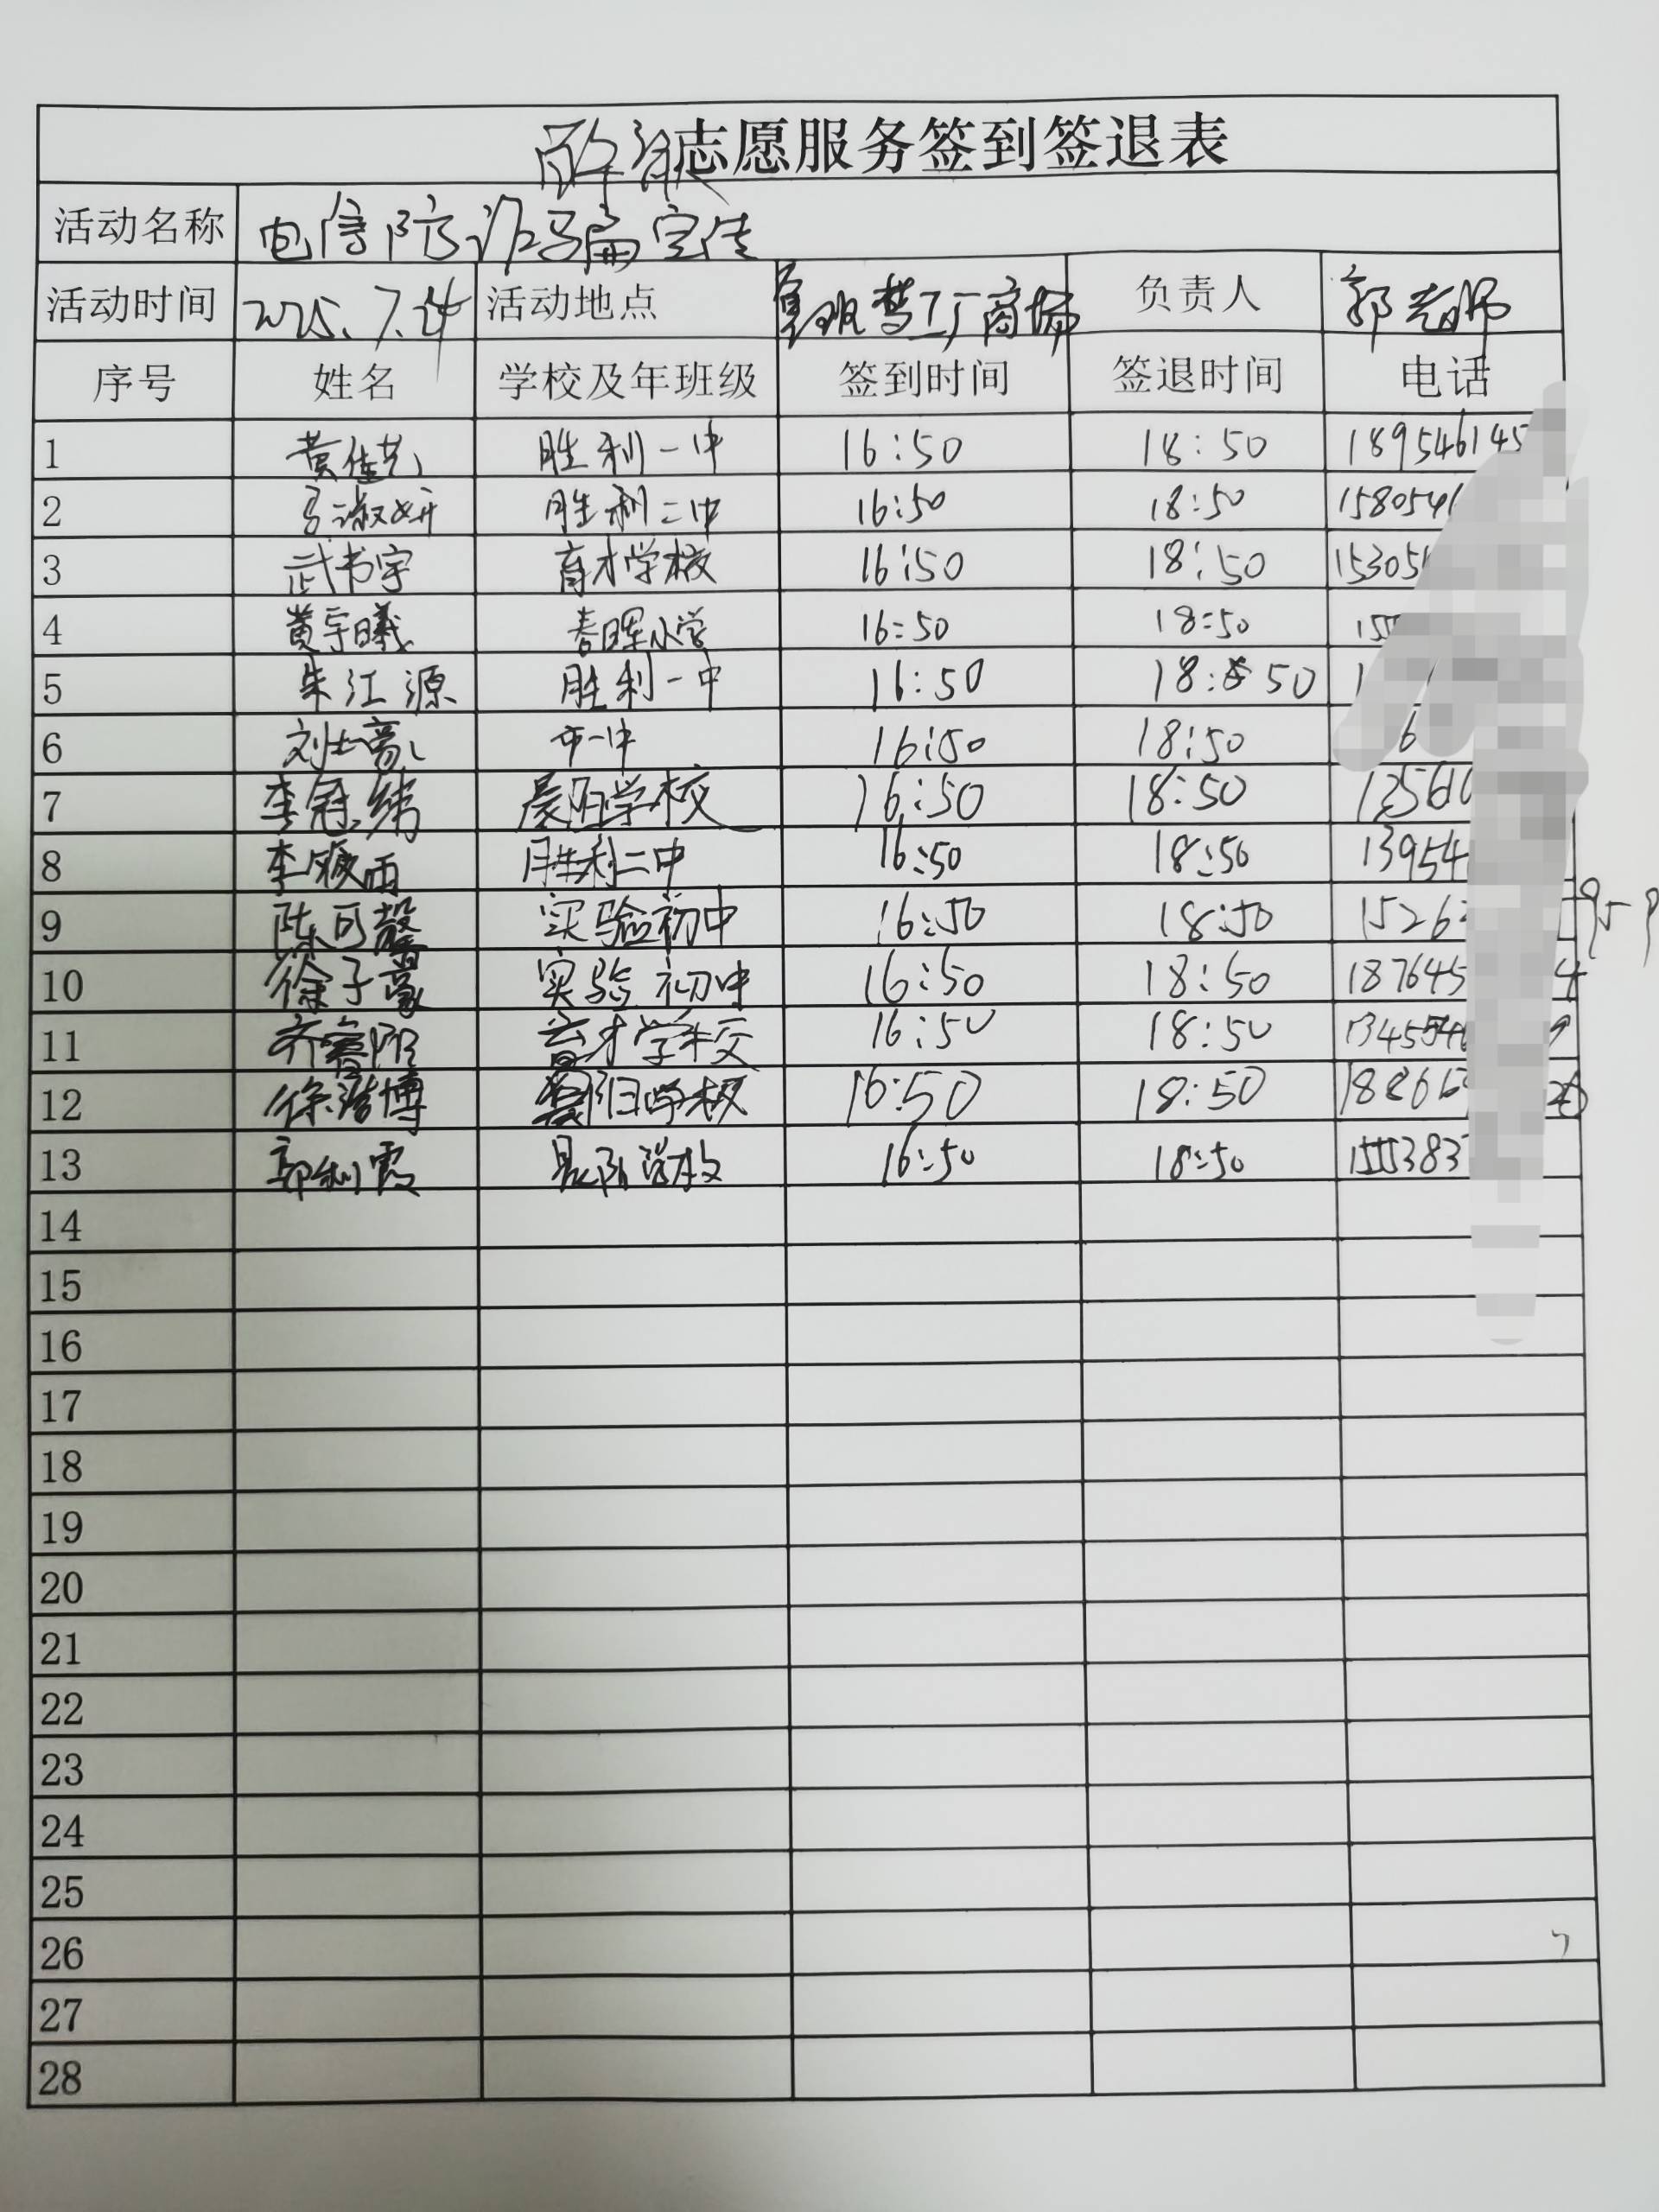 志愿服务签到签退表
活动名称 电信防诈骗宣传
活动时间 2025.7.24 活动地点 鲁班梦工厂商场 负责人 郭老师
序号 姓名 学校及年班级 签到时间 签退时间 电话
1 黄佳艺 胜利一中 16:50 18:50 189546145
2 淑妍 胜利二中 16:50 18:50 1580546
3 武书宇 育才学校 16:50 18:50 15305
4 黄宇曦 春晖小学 16:50 18:50 155
5 朱江源 胜利一中 16:50 18:50 1
6 刘士豪 市一中 16:50 18:50 6
7 李冠纬 晨阳学校 16:50 18:50
8 李 雨 胜利二中 16:50 18:50 13954
9 陈可馨 实验初中 16:50 18:50 1526
10 徐子豪 实验初中 16:50 18:50 187645 4
11 齐睿阳 育才学校 16:50 18:50
12 徐浩博 晨阳学校 16:50 18:50
13 郭利霞 晨阳学校 16:50 18:50 1553837
14
15
16
17
18
19
20
21
22
23
24
25
26
27
28